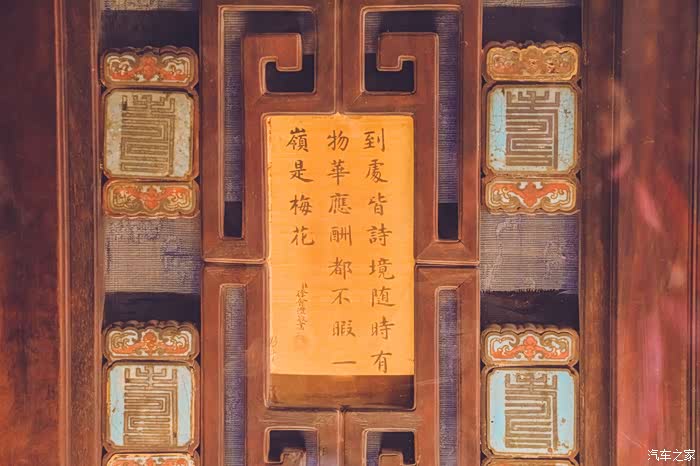 到處皆詩境随時有
物華應酬都不暇一
嶺是梅花
汽车之家